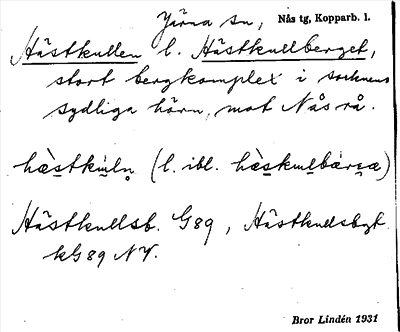 Järna sn, Nås tg, Kopparb. l.
Hästkullen l. Hästkullberget,
stort bergkomplex i socknens
sydliga hörn, mot Nås rå.
hæ̀stku̇ln̥ (l. ibl. hæ̀skulbärjæ)
Hästkullsb. G89, Hästkullsbgt.
kG89 NV.
Bror Lindén 1931